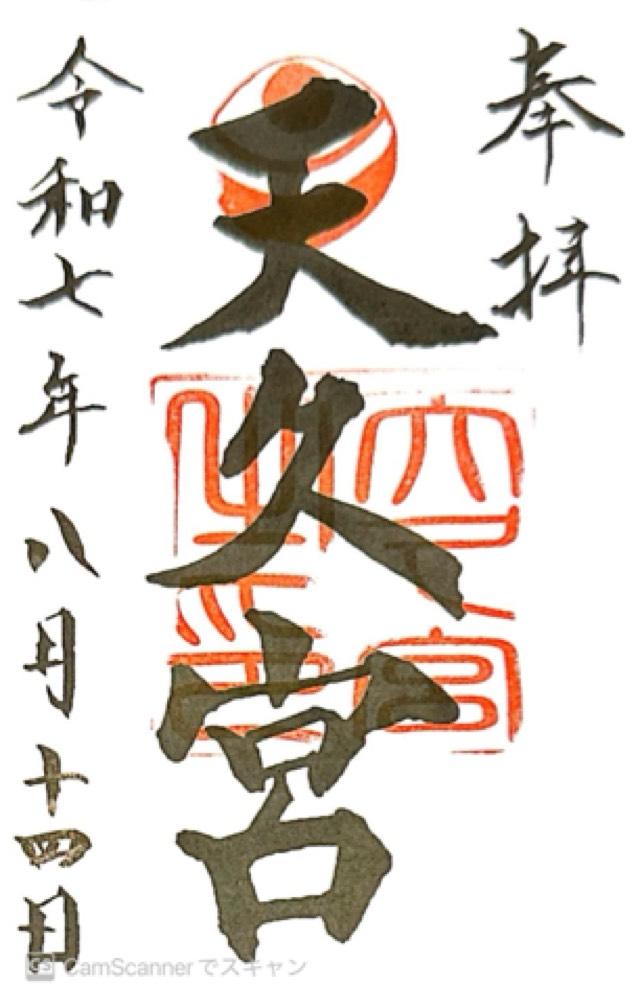 奉拝
天久宮
令和七年八月十四日
CamScannerでスキャン